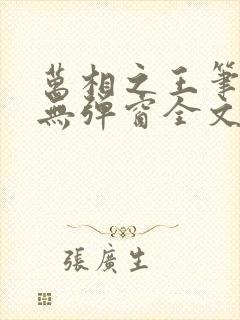 萬相之王筆
無彈窗全文
張廣生